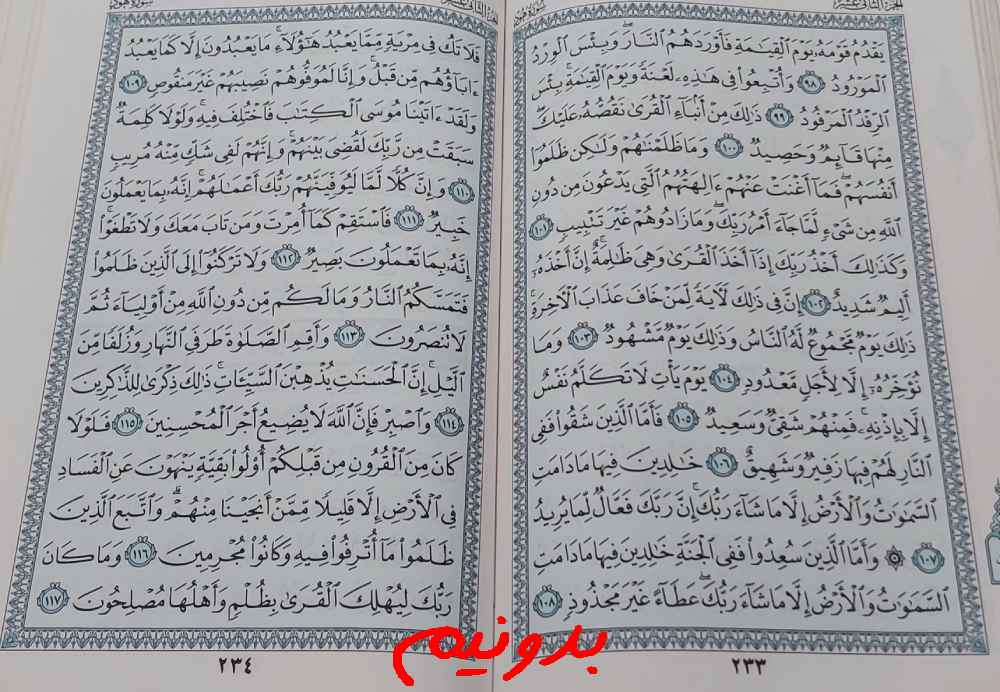 الجزء الثاني عشر
سورة هود
يَقْدُمُ قَوْمَهُۥ يَوْمَ ٱلْقِيَٰمَةِ فَأَوْرَدَهُمُ ٱلنَّارَۖ وَبِئْسَ ٱلْوِرْدُ
ٱلْمَوْرُودُ ٩٨ وَأُتْبِعُوا۟ فِى هَٰذِهِۦ لَعْنَةً وَيَوْمَ ٱلْقِيَٰمَةِۚ بِئْسَ
ٱلرِّفْدُ ٱلْمَرْفُودُ ٩٩ ذَٰلِكَ مِنْ أَنۢبَآءِ ٱلْقُرَىٰ نَقُصُّهُۥ عَلَيْكَۖ
مِنْهَا قَآئِمٌ وَحَصِيدٌ ١٠٠ وَمَا ظَلَمْنَٰهُمْ وَلَٰكِن ظَلَمُوٓا۟
أَنفُسَهُمْۖ فَمَآ أَغْنَتْ عَنْهُمْ ءَالِهَتُهُمُ ٱلَّتِى يَدْعُونَ مِن دُونِ
ٱللَّهِ مِن شَىْءٍ لَّمَّا جَآءَ أَمْرُ رَبِّكَۖ وَمَا زَادُوهُمْ غَيْرَ تَتْبِيبٍ ١٠١
وَكَذَٰلِكَ أَخْذُ رَبِّكَ إِذَآ أَخَذَ ٱلْقُرَىٰ وَهِىَ ظَٰلِمَةٌۚ إِنَّ أَخْذَهُۥٓ
أَلِيمٌ شَدِيدٌ ١٠٢ إِنَّ فِى ذَٰلِكَ لَءَايَةً لِّمَنْ خَافَ عَذَابَ ٱلْءَاخِرَةِۚ
ذَٰلِكَ يَوْمٌ مَّجْمُوعٌ لَّهُ ٱلنَّاسُ وَذَٰلِكَ يَوْمٌ مَّشْهُودٌ ١٠٣ وَمَا
نُؤَخِّرُهُۥٓ إِلَّا لِأَجَلٍ مَّعْدُودٍ ١٠٤ يَوْمَ يَأْتِ لَا تَكَلَّمُ نَفْسٌ
إِلَّا بِإِذْنِهِۦۚ فَمِنْهُمْ شَقِىٌّ وَسَعِيدٌ ١٠٥ فَأَمَّا ٱلَّذِينَ شَقُوا۟ فَفِى
ٱلنَّارِ لَهُمْ فِيهَا زَفِيرٌ وَشَهِيقٌ ١٠٦ خَٰلِدِينَ فِيهَا مَا دَامَتِ
ٱلسَّمَٰوَٰتُ وَٱلْأَرْضُ إِلَّا مَا شَآءَ رَبُّكَۚ إِنَّ رَبَّكَ فَعَّالٌ لِّمَا يُرِيدُ
١٠٧ ۞ وَأَمَّا ٱلَّذِينَ سُعِدُوا۟ فَفِى ٱلْجَنَّةِ خَٰلِدِينَ فِيهَا مَا دَامَتِ
ٱلسَّمَٰوَٰتُ وَٱلْأَرْضُ إِلَّا مَا شَآءَ رَبُّكَۖ عَطَآءً غَيْرَ مَجْذُوذٍ ١٠٨
٢٣٣
الجزء الثاني عشر
سورة هود
فَلَا تَكُ فِى مِرْيَةٍ مِّمَّا يَعْبُدُ هَٰٓؤُلَآءِۚ مَا يَعْبُدُونَ إِلَّا كَمَا يَعْبُدُ
ءَابَآؤُهُم مِّن قَبْلُۚ وَإِنَّا لَمُوَفُّوهُمْ نَصِيبَهُمْ غَيْرَ مَنقُوصٍ ١٠٩
وَلَقَدْ ءَاتَيْنَا مُوسَى ٱلْكِتَٰبَ فَٱخْتُلِفَ فِيهِۚ وَلَوْلَا كَلِمَةٌ
سَبَقَتْ مِن رَّبِّكَ لَقُضِىَ بَيْنَهُمْۚ وَإِنَّهُمْ لَفِى شَكٍّ مِّنْهُ مُرِيبٍ
١١٠ وَإِنَّ كُلًّا لَّمَّا لَيُوَفِّيَنَّهُمْ رَبُّكَ أَعْمَٰلَهُمْۚ إِنَّهُۥ بِمَا يَعْمَلُونَ
خَبِيرٌ ١١١ فَٱسْتَقِمْ كَمَآ أُمِرْتَ وَمَن تَابَ مَعَكَ وَلَا تَطْغَوْا۟ۚ
إِنَّهُۥ بِمَا تَعْمَلُونَ بَصِيرٌ ١١٢ وَلَا تَرْكَنُوٓا۟ إِلَى ٱلَّذِينَ ظَلَمُوا۟
فَتَمَسَّكُمُ ٱلنَّارُ وَمَا لَكُم مِّن دُونِ ٱللَّهِ مِنْ أَوْلِيَآءَ ثُمَّ
لَا تُنصَرُونَ ١١٣ وَأَقِمِ ٱلصَّلَوٰةَ طَرَفَىِ ٱلنَّهَارِ وَزُلَفًا مِّنَ
ٱلَّيْلِۚ إِنَّ ٱلْحَسَنَٰتِ يُذْهِبْنَ ٱلسَّيِّـَٔاتِۚ ذَٰلِكَ ذِكْرَىٰ لِلذَّٰكِرِينَ
١١٤ وَٱصْبِرْ فَإِنَّ ٱللَّهَ لَا يُضِيعُ أَجْرَ ٱلْمُحْسِنِينَ ١١٥ فَلَوْلَا
كَانَ مِنَ ٱلْقُرُونِ مِن قَبْلِكُمْ أُو۟لُوا۟ بَقِيَّةٍ يَنْهَوْنَ عَنِ ٱلْفَسَادِ
فِى ٱلْأَرْضِ إِلَّا قَلِيلًا مِّمَّنْ أَنجَيْنَا مِنْهُمْۗ وَٱتَّبَعَ ٱلَّذِينَ
ظَلَمُوا۟ مَآ أُتْرِفُوا۟ فِيهِ وَكَانُوا۟ مُجْرِمِينَ ١١٦ وَمَا كَانَ
رَبُّكَ لِيُهْلِكَ ٱلْقُرَىٰ بِظُلْمٍ وَأَهْلُهَا مُصْلِحُونَ ١١٧
٢٣٤
بدونیم